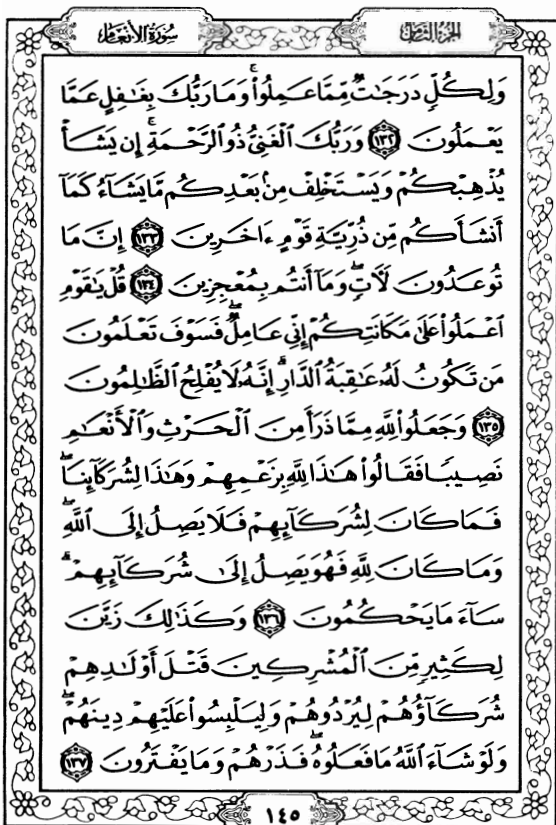 سُورَةُ الأَنْعَامِ الجُزْءُ الثَّامِنُ
وَلِكُلٍّ دَرَجَٰتٌ مِّمَّا عَمِلُوا۟ ۚ وَمَا رَبُّكَ بِغَٰفِلٍ عَمَّا
يَعْمَلُونَ ١٣٢ وَرَبُّكَ ٱلْغَنِىُّ ذُو ٱلرَّحْمَةِ ۚ إِن يَشَأْ
يُذْهِبْكُمْ وَيَسْتَخْلِفْ مِنۢ بَعْدِكُم مَّا يَشَآءُ كَمَآ
أَنشَأَكُم مِّن ذُرِّيَّةِ قَوْمٍ ءَاخَرِينَ ١٣٣ إِنَّ مَا
تُوعَدُونَ لَءَاتٍ ۖ وَمَآ أَنتُم بِمُعْجِزِينَ ١٣٤ قُلْ يَٰقَوْمِ
ٱعْمَلُوا۟ عَلَىٰ مَكَانَتِكُمْ إِنِّى عَامِلٌ ۖ فَسَوْفَ تَعْلَمُونَ
مَن تَكُونُ لَهُۥ عَٰقِبَةُ ٱلدَّارِ ۗ إِنَّهُۥ لَا يُفْلِحُ ٱلظَّٰلِمُونَ
١٣٥ وَجَعَلُوا۟ لِلَّهِ مِمَّا ذَرَأَ مِنَ ٱلْحَرْثِ وَٱلْأَنْعَٰمِ
نَصِيبًا فَقَالُوا۟ هَٰذَا لِلَّهِ بِزَعْمِهِمْ وَهَٰذَا لِشُرَكَآئِنَا ۖ
فَمَا كَانَ لِشُرَكَآئِهِمْ فَلَا يَصِلُ إِلَى ٱللَّهِ ۖ
وَمَا كَانَ لِلَّهِ فَهُوَ يَصِلُ إِلَىٰ شُرَكَآئِهِمْ ۗ
سَآءَ مَا يَحْكُمُونَ ١٣٦ وَكَذَٰلِكَ زَيَّنَ
لِكَثِيرٍ مِّنَ ٱلْمُشْرِكِينَ قَتْلَ أَوْلَٰدِهِمْ
شُرَكَآؤُهُمْ لِيُرْدُوهُمْ وَلِيَلْبِسُوا۟ عَلَيْهِمْ دِينَهُمْ ۖ
وَلَوْ شَآءَ ٱللَّهُ مَا فَعَلُوهُ ۖ فَذَرْهُمْ وَمَا يَفْتَرُونَ ١٣٧
١٤٥